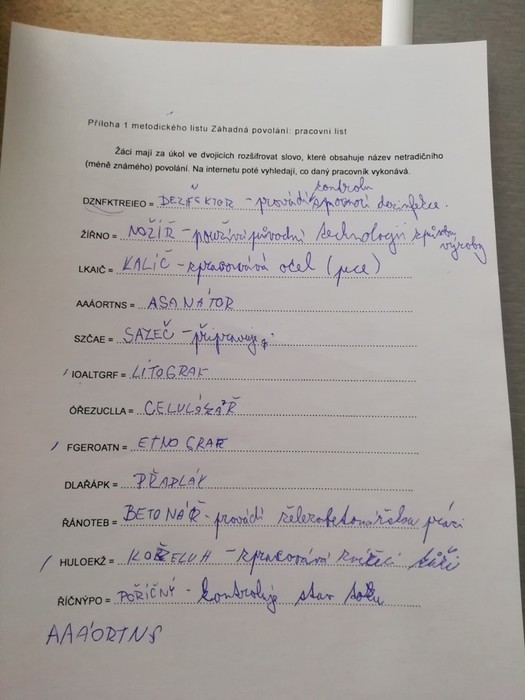 Příloha 1 metodického listu Záhadná povolání: pracovní list
Žáci mají za úkol ve dvojicích rozšifrovat slovo, které obsahuje název netradičního
(méně známého) povolání. Na internetu poté vyhledají, co daný pracovník vykonává.
kontrolu
DZNFKTREIEO = DEZIFEKTOR - provádí s pomocí dezinfekce.
ŽÍRNO = NOŽÍŘ - používá původní technologii způsobu
výroby
LKAIČ = KALIČ - zpracovává ocel (pece)
AAÁORTNS = ASANÁTOR
SZČAE = SAZEČ - připravuje
IOALTGRF = LITOGRAF
ÓŘEZUCLLA = CELULÓZAŘ
FGEROATN = ETNOGRAF
DLAŘÁPK = PŘADLÁK
ŘÁNOTEB = BETONÁŘ - provádí železobetonářskou práci
HULOEKŽ = KOŽELUH - zpracování zvířecí kůži
ŘÍČNÝPO = POŘÍČNÝ - kontroluje stav toku
AAÁORTNS